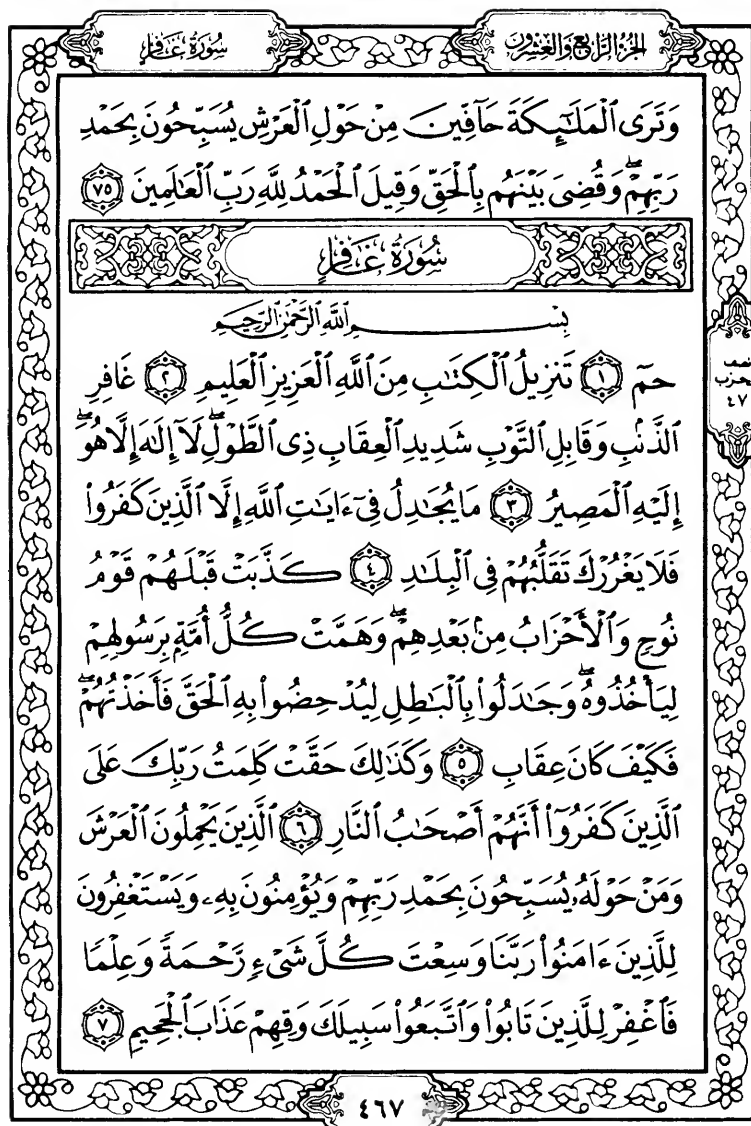 الجزء الرابع والعشرون
سورة غافر
وَتَرَى ٱلْمَلَٰٓئِكَةَ حَآفِّينَ مِنْ حَوْلِ ٱلْعَرْشِ يُسَبِّحُونَ بِحَمْدِ
رَبِّهِمْۖ وَقُضِىَ بَيْنَهُم بِٱلْحَقِّ وَقِيلَ ٱلْحَمْدُ لِلَّهِ رَبِّ ٱلْعَٰلَمِينَ ٧٥
سُورَةُ غَافِرٍ
بِسْمِ ٱللَّهِ ٱلرَّحْمَٰنِ ٱلرَّحِيمِ
حمٓ ١ تَنزِيلُ ٱلْكِتَٰبِ مِنَ ٱللَّهِ ٱلْعَزِيزِ ٱلْعَلِيمِ ٢ غَافِرِ
ٱلذَّنۢبِ وَقَابِلِ ٱلتَّوْبِ شَدِيدِ ٱلْعِقَابِ ذِى ٱلطَّوْلِۖ لَآ إِلَٰهَ إِلَّا هُوَۖ
إِلَيْهِ ٱلْمَصِيرُ ٣ مَا يُجَٰدِلُ فِىٓ ءَايَٰتِ ٱللَّهِ إِلَّا ٱلَّذِينَ كَفَرُوا۟
فَلَا يَغْرُرْكَ تَقَلُّبُهُمْ فِى ٱلْبِلَٰدِ ٤ كَذَّبَتْ قَبْلَهُمْ قَوْمُ
نُوحٍ وَٱلْأَحْزَابُ مِنۢ بَعْدِهِمْۖ وَهَمَّتْ كُلُّ أُمَّةٍۭ بِرَسُولِهِمْ
لِيَأْخُذُوهُۖ وَجَٰدَلُوا۟ بِٱلْبَٰطِلِ لِيُدْحِضُوا۟ بِهِ ٱلْحَقَّ فَأَخَذْتُهُمْۖ
فَكَيْفَ كَانَ عِقَابِ ٥ وَكَذَٰلِكَ حَقَّتْ كَلِمَتُ رَبِّكَ عَلَى
ٱلَّذِينَ كَفَرُوٓا۟ أَنَّهُمْ أَصْحَٰبُ ٱلنَّارِ ٦ ٱلَّذِينَ يَحْمِلُونَ ٱلْعَرْشَ
وَمَنْ حَوْلَهُۥ يُسَبِّحُونَ بِحَمْدِ رَبِّهِمْ وَيُؤْمِنُونَ بِهِۦ وَيَسْتَغْفِرُونَ
لِلَّذِينَ ءَامَنُوا۟ رَبَّنَا وَسِعْتَ كُلَّ شَىْءٍ رَّحْمَةً وَعِلْمًا
فَٱغْفِرْ لِلَّذِينَ تَابُوا۟ وَٱتَّبَعُوا۟ سَبِيلَكَ وَقِهِمْ عَذَابَ ٱلْجَحِيمِ ٧
٤٧
٤٦٧